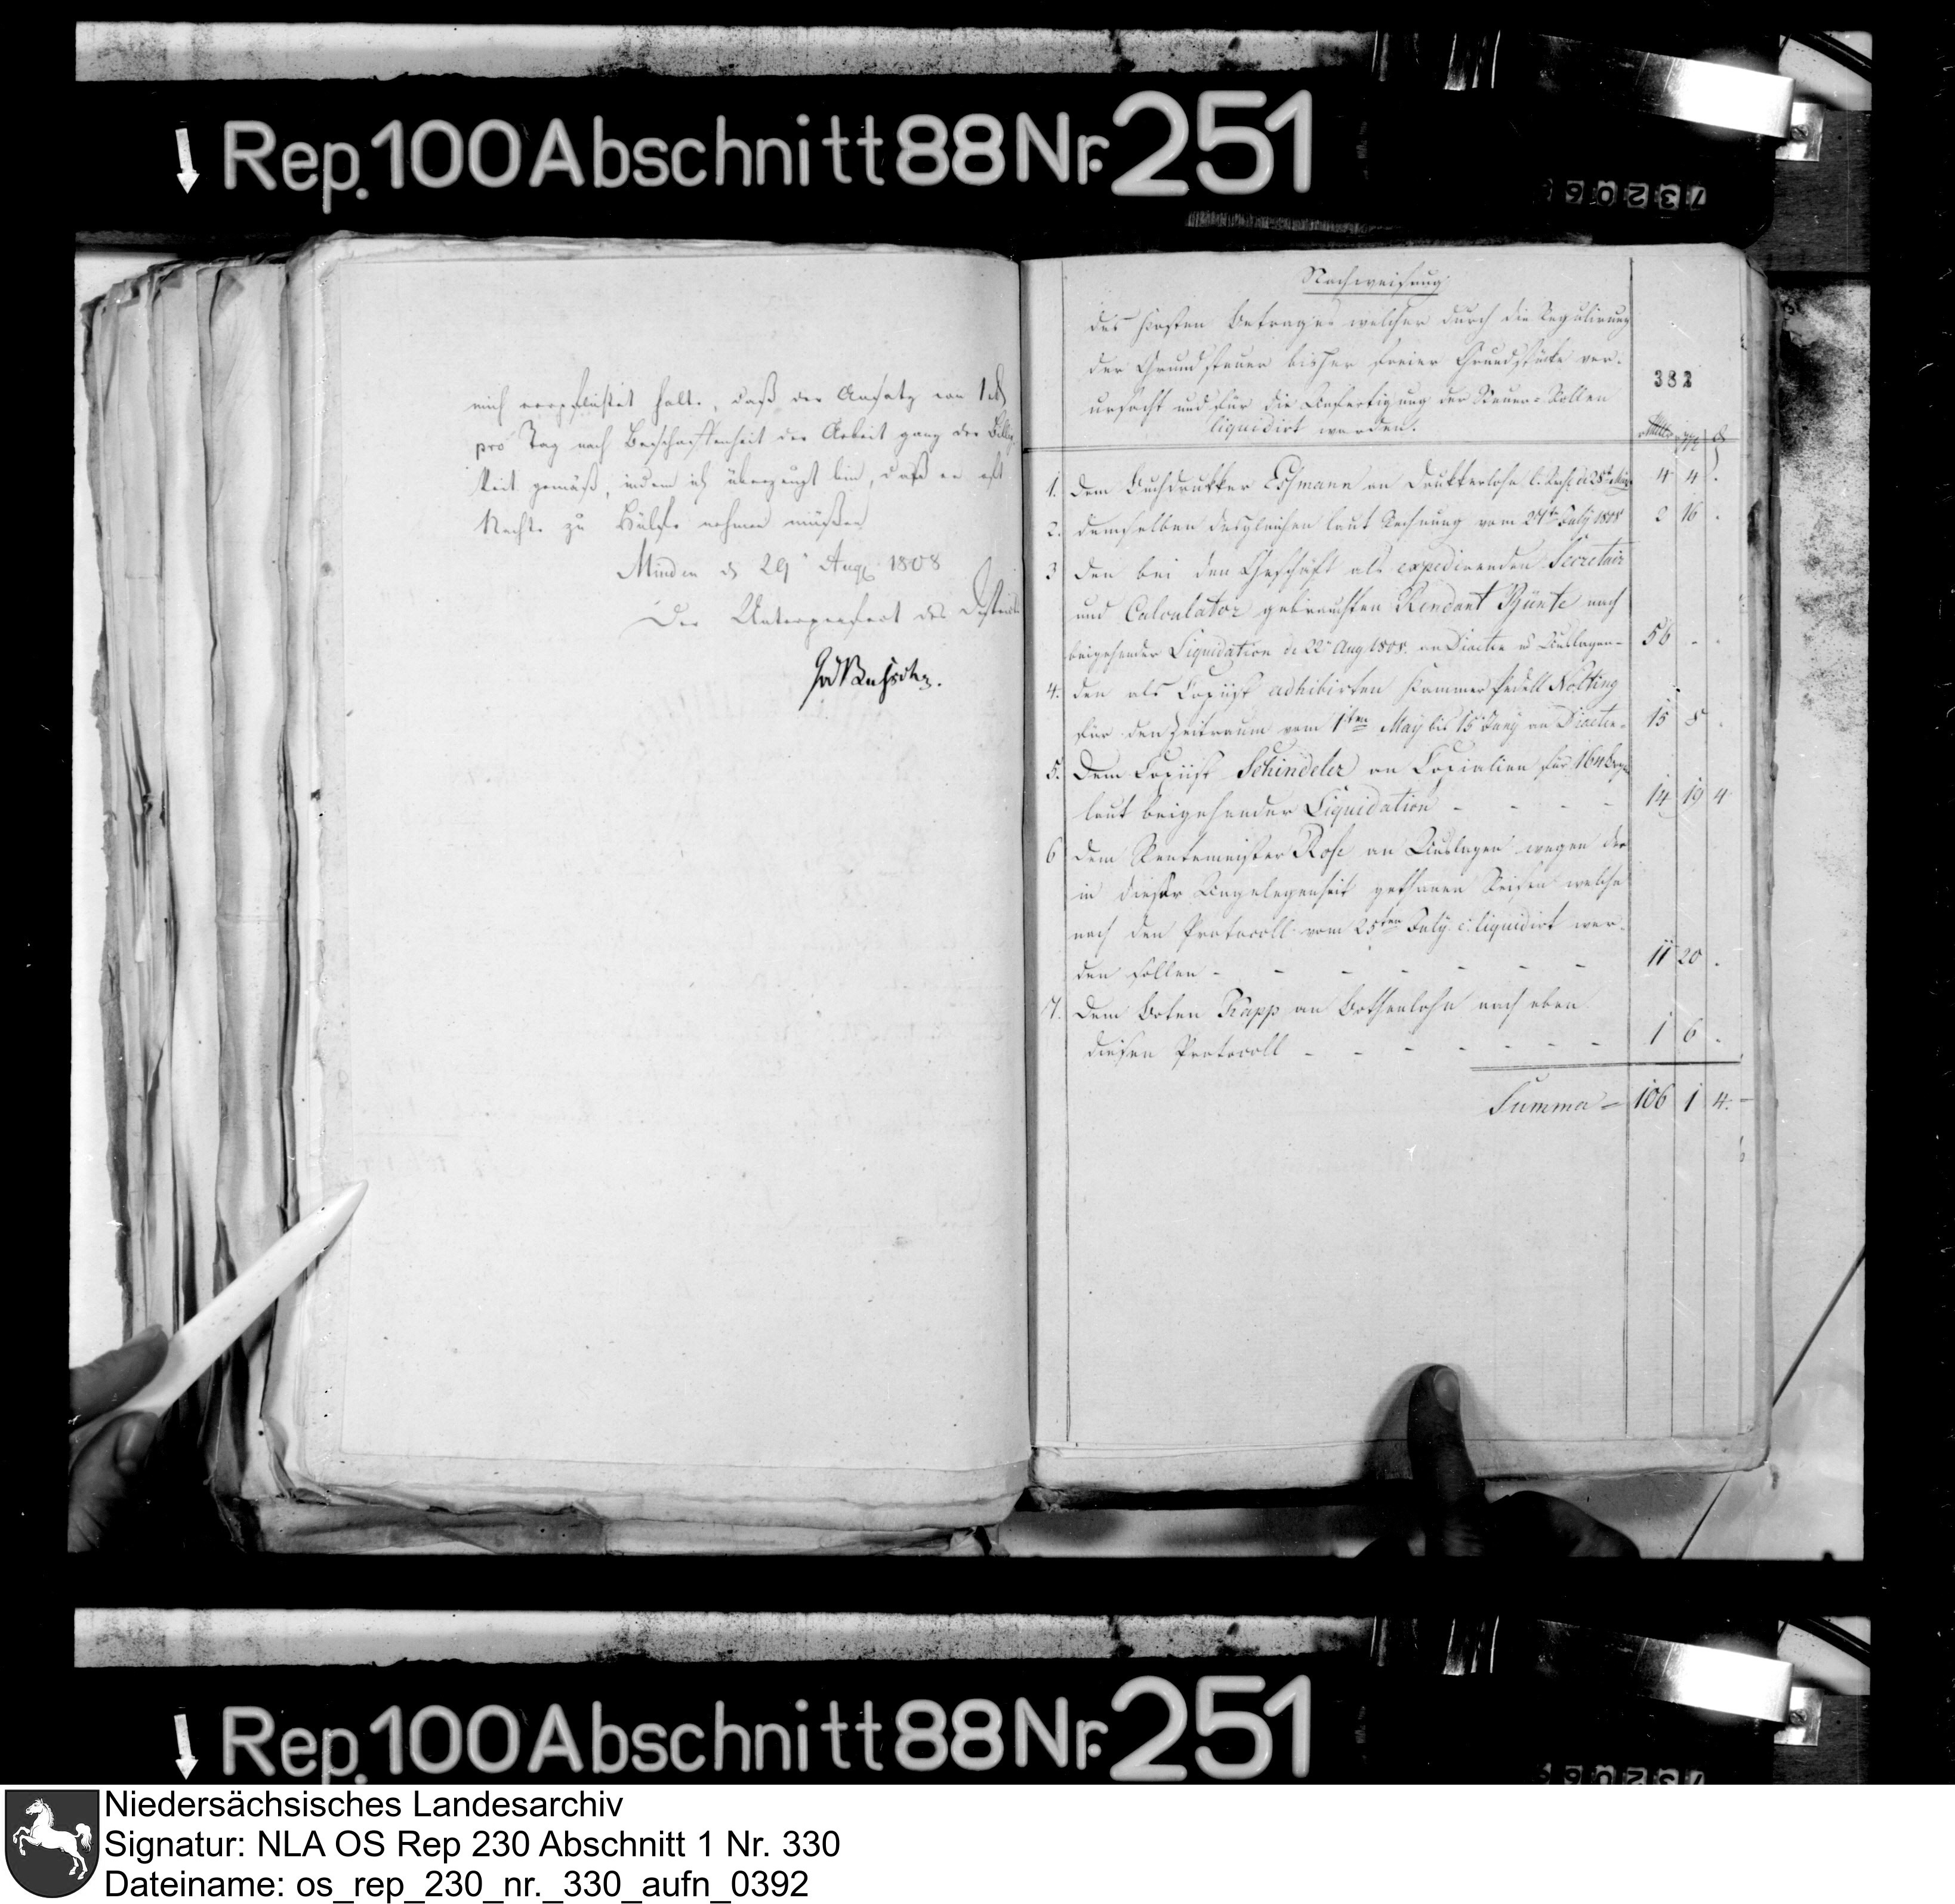 Rep. 100 Abschnitt 88 Nr. 251
mich verpflichtet halte, daß der Ansatz von 1
pro Tag nach Beschaffenheit der Arbeit ganz der Billig-
keit gemäß, indem ich überzeugt bin, daß er oft
Nachts zu Hülfe nehmen müßen
Minden d 29 Aug 1808
Der Unterpraefect des Districts
Nachweisung
des Kosten Betrages welcher durch die Regulirung
der Grundsteuer bisher freier Grundstücke ver-
ursacht und für die Anfertigung der Steuer-Rollen
liquidirt werden.
382
1. dem Buchdrukker Eßmann an Drukkerlohn l. Rech. d 28t 4 4 .
2. demselben desgleichen laut Rechnung vom 27ten July 1808 2 16 .
3 den bei den Geschäft als expedirenden Secretair
und Calculator gebrauchten Rendant Bünte nach
beigehender Liquidation de 22 Aug 1808. an Diaeten u Auslagen - 56 - .
4. den als Copiist adhibirten Kammer Pedell Nolting
für den Zeitraum vom 1ten May bis 15 Juny an Diaeten - 15 8 .
5. Dem Copiist Schindeler an Copialien für 164
laut beigehender Liquidation - - - - 14 19 4
6 dem Rentemeister Rose an Auslagen wegen der
in dieser Angelegenheit gethanen Reisen welche
nach den Protocoll vom 25ten July c. liquidirt wer-
den sollen - - - - - - - 11 20 .
7. dem Boten Rapp an Bothenlohn nach eben
diesen Protocoll - - - - - - - 1 6 .
Summa = 106 1 4.
Rep. 100 Abschnitt 88 Nr. 251
Niedersächsisches Landesarchiv
Signatur: NLA OS Rep 230 Abschnitt 1 Nr. 330
Dateiname: os_rep_230_nr._330_aufn_0392